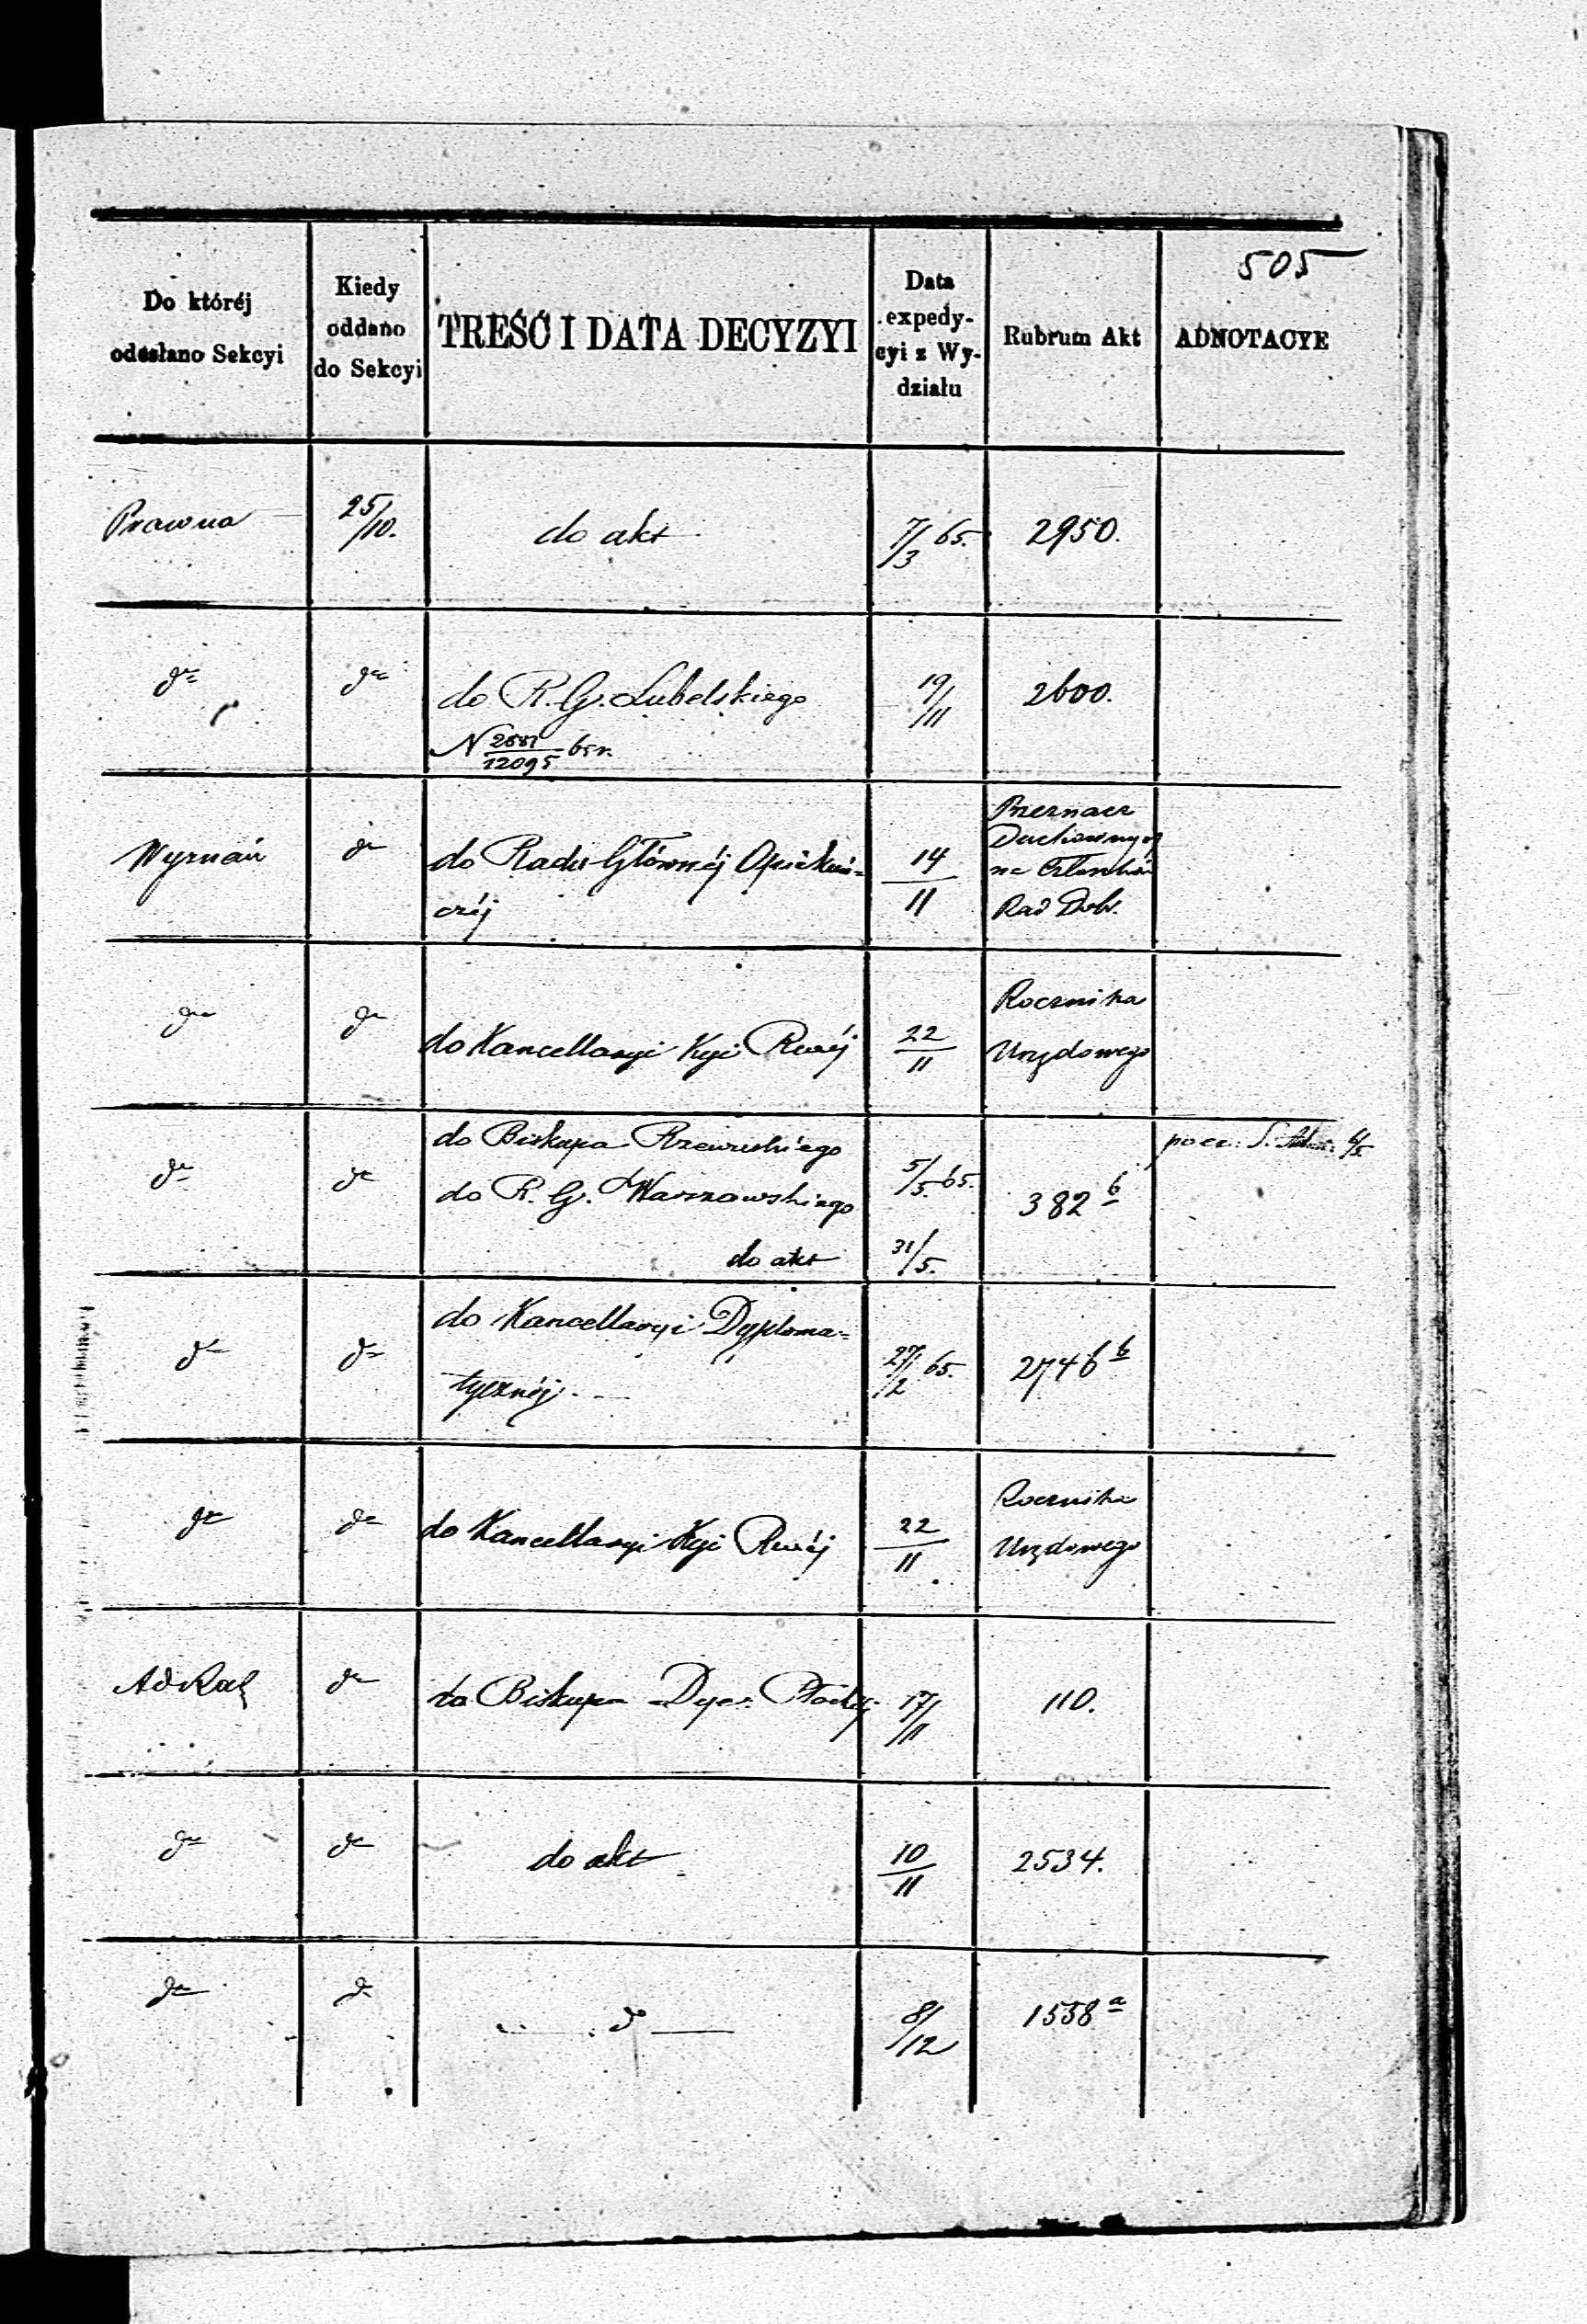 505
Do któréj odesłano Sekcyi
Kiedy oddano do Sekcyi
TREŚĆ I DATA DECYZYI
Data expedycyi z Wydziału
Rubrum Akt
ADNOTACYE
Prawna 25/10. do akt 7/3 65. 2950.
do do do R. G. Lubelskiego 19/11 2600.
N 2881/12095 65 r.
Wyznań do do Rady Główněj Opiekuń-
czéj 14/11
Przeznacz
Duchownych
na Członków
Rad Dob.
do do do Kancellaryi Kyi Rwéj 22/11
Rocznika
Urzędowego
do do do Biskupa Rzewuskiego 5/5. 65.
do R. G. Warszawskiego 382 b
do akt 31/5.
pocz. S. 6/5
do do do Kancellaryi Dyploma-
tycznéj. 27/2 65. 2746 b
do do do Kancellaryi Kyi Rwéj 22/11
Rocznika
Urzędowego
Ad Rał do do Biskupa Dyec. Płockiéj 17/11 110.
do do do akt 10/11 2534.
do do do 8/12 1558 a